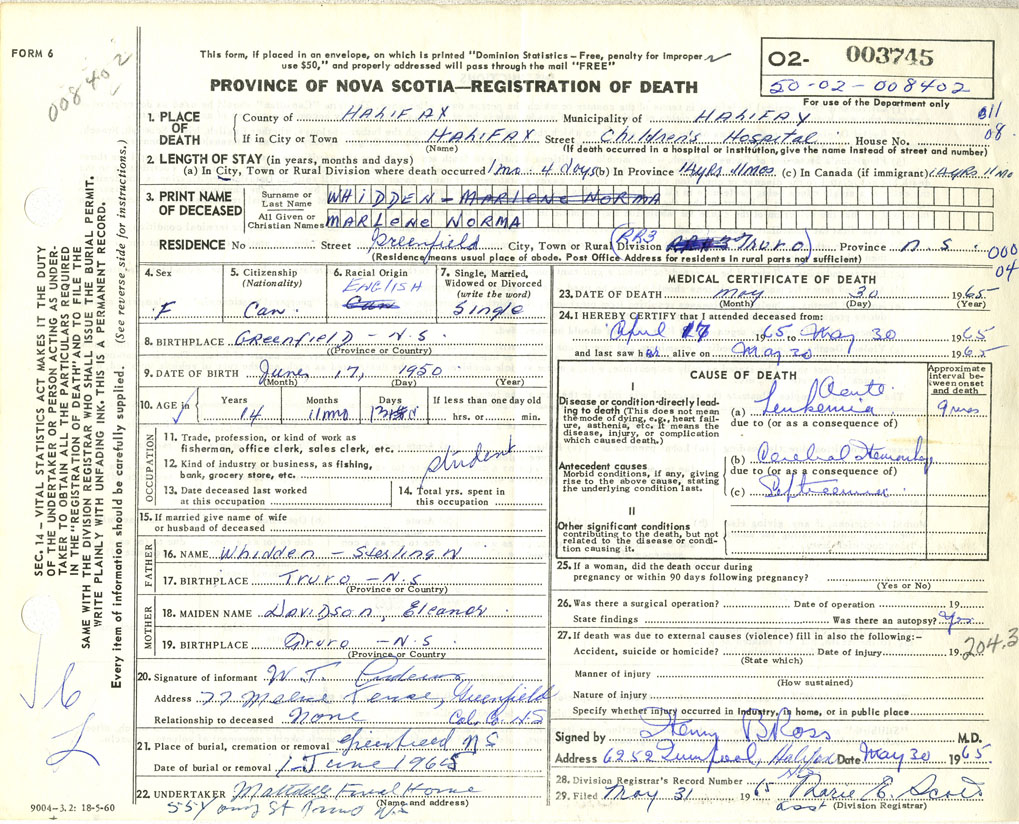 FORM 6
008402
This form, if placed in an envelope, on which is printed "Dominion Statistics – Free, penalty for improper
use $50," and properly addressed will pass through the mail "FREE"
O2- 003745
50-02-008402
For use of the Department only
PROVINCE OF NOVA SCOTIA—REGISTRATION OF DEATH
1. PLACE OF DEATH
County of HALIFAX Municipality of HALIFAX 011
If in City or Town HALIFAX (Name) Street Children's Hospital House No. 08
(If death occurred in a hospital or institution, give the name instead of street and number)
2. LENGTH OF STAY (in years, months and days)
(a) In City, Town or Rural Division where death occurred 1 mo 4 days (b) In Province 14yrs 11mos (c) In Canada (if immigrant) 14yrs 11mo
3. PRINT NAME OF DECEASED
Surname or Last Name WHIDDEN – MARLENE NORMA
All Given or Christian Names MARLENE NORMA
RESIDENCE No Street Greenfield City, Town or Rural Division (RR3 Truro) Province N.S. 000
(Residence means usual place of abode. Post Office Address for residents in rural parts not sufficient) 04
4. Sex F
5. Citizenship (Nationality) Can.
6. Racial Origin ENGLISH Can
7. Single, Married, Widowed or Divorced (write the word) Single
8. BIRTHPLACE GREENFIELD – N.S.
(Province or Country)
9. DATE OF BIRTH June 17, 1950
(Month) (Day) (Year)
10. AGE in Years 14 Months 11mo Days 13 If less than one day old hrs. or min.
OCCUPATION
11. Trade, profession, or kind of work as
fisherman, office clerk, sales clerk, etc. student
12. Kind of industry or business, as fishing,
bank, grocery store, etc.
13. Date deceased last worked
at this occupation
14. Total yrs. spent in
this occupation
15. If married give name of wife
or husband of deceased
FATHER
16. NAME Whidden – Sterling W
17. BIRTHPLACE Truro – N.S
(Province or Country)
MOTHER
18. MAIDEN NAME Davidson, Eleanor
19. BIRTHPLACE Truro – N.S
(Province or Country)
20. Signature of informant W. T.
Address Greenfield
Relationship to deceased None Col. Co. N.S
21. Place of burial, cremation or removal Greenfield N S
Date of burial or removal 1 June 1965
22. UNDERTAKER Funeral Home
(Name and address)
55 Young St Truro N.S
9004–3.2: 18-5-60
MEDICAL CERTIFICATE OF DEATH
23. DATE OF DEATH May 30 1965
(Month) (Day) (Year)
24. I HEREBY CERTIFY that I attended deceased from:
April 17 1965 to May 30 1965
and last saw her alive on May 30 1965
CAUSE OF DEATH
Approximate interval between onset and death
I
Disease or condition directly leading to death (This does not mean the mode of dying, e.g., heart failure, asthenia, etc. It means the disease, injury, or complication which caused death.)
(a) Acute Leukemia 9 mos
due to (or as a consequence of)
Antecedent causes
Morbid conditions, if any, giving rise to the above cause, stating the underlying condition last.
(b) Cerebral Hemorrhage
due to (or as a consequence of)
(c) Septicemia
II
Other significant conditions
contributing to the death, but not related to the disease or condition causing it.
25. If a woman, did the death occur during
pregnancy or within 90 days following pregnancy?
(Yes or No)
26. Was there a surgical operation? Date of operation 19
State findings Was there an autopsy? Yes
27. If death was due to external causes (violence) fill in also the following:–
Accident, suicide or homicide? Date of injury 19 204.3
(State which)
Manner of injury
(How sustained)
Nature of injury
Specify whether injury occurred in Industry, in home, or in public place
Signed by Henry B Ross M.D.
Address 6252 Halifax Date May 30 1965
28. Division Registrar's Record Number
29. Filed May 31 1965 Marie E. Scott
asst (Division Registrar)
SEC. 14 – VITAL STATISTICS ACT MAKES IT THE DUTY
OF THE UNDERTAKER OR PERSON ACTING AS UNDER-
TAKER TO OBTAIN ALL THE PARTICULARS REQUIRED
IN THE "REGISTRATION OF DEATH" AND TO FILE THE
SAME WITH THE DIVISION REGISTRAR WHO SHALL ISSUE THE BURIAL PERMIT.
WRITE PLAINLY WITH UNFADING INK. THIS IS A PERMANENT RECORD.
Every item of information should be carefully supplied. (See reverse side for instructions.)